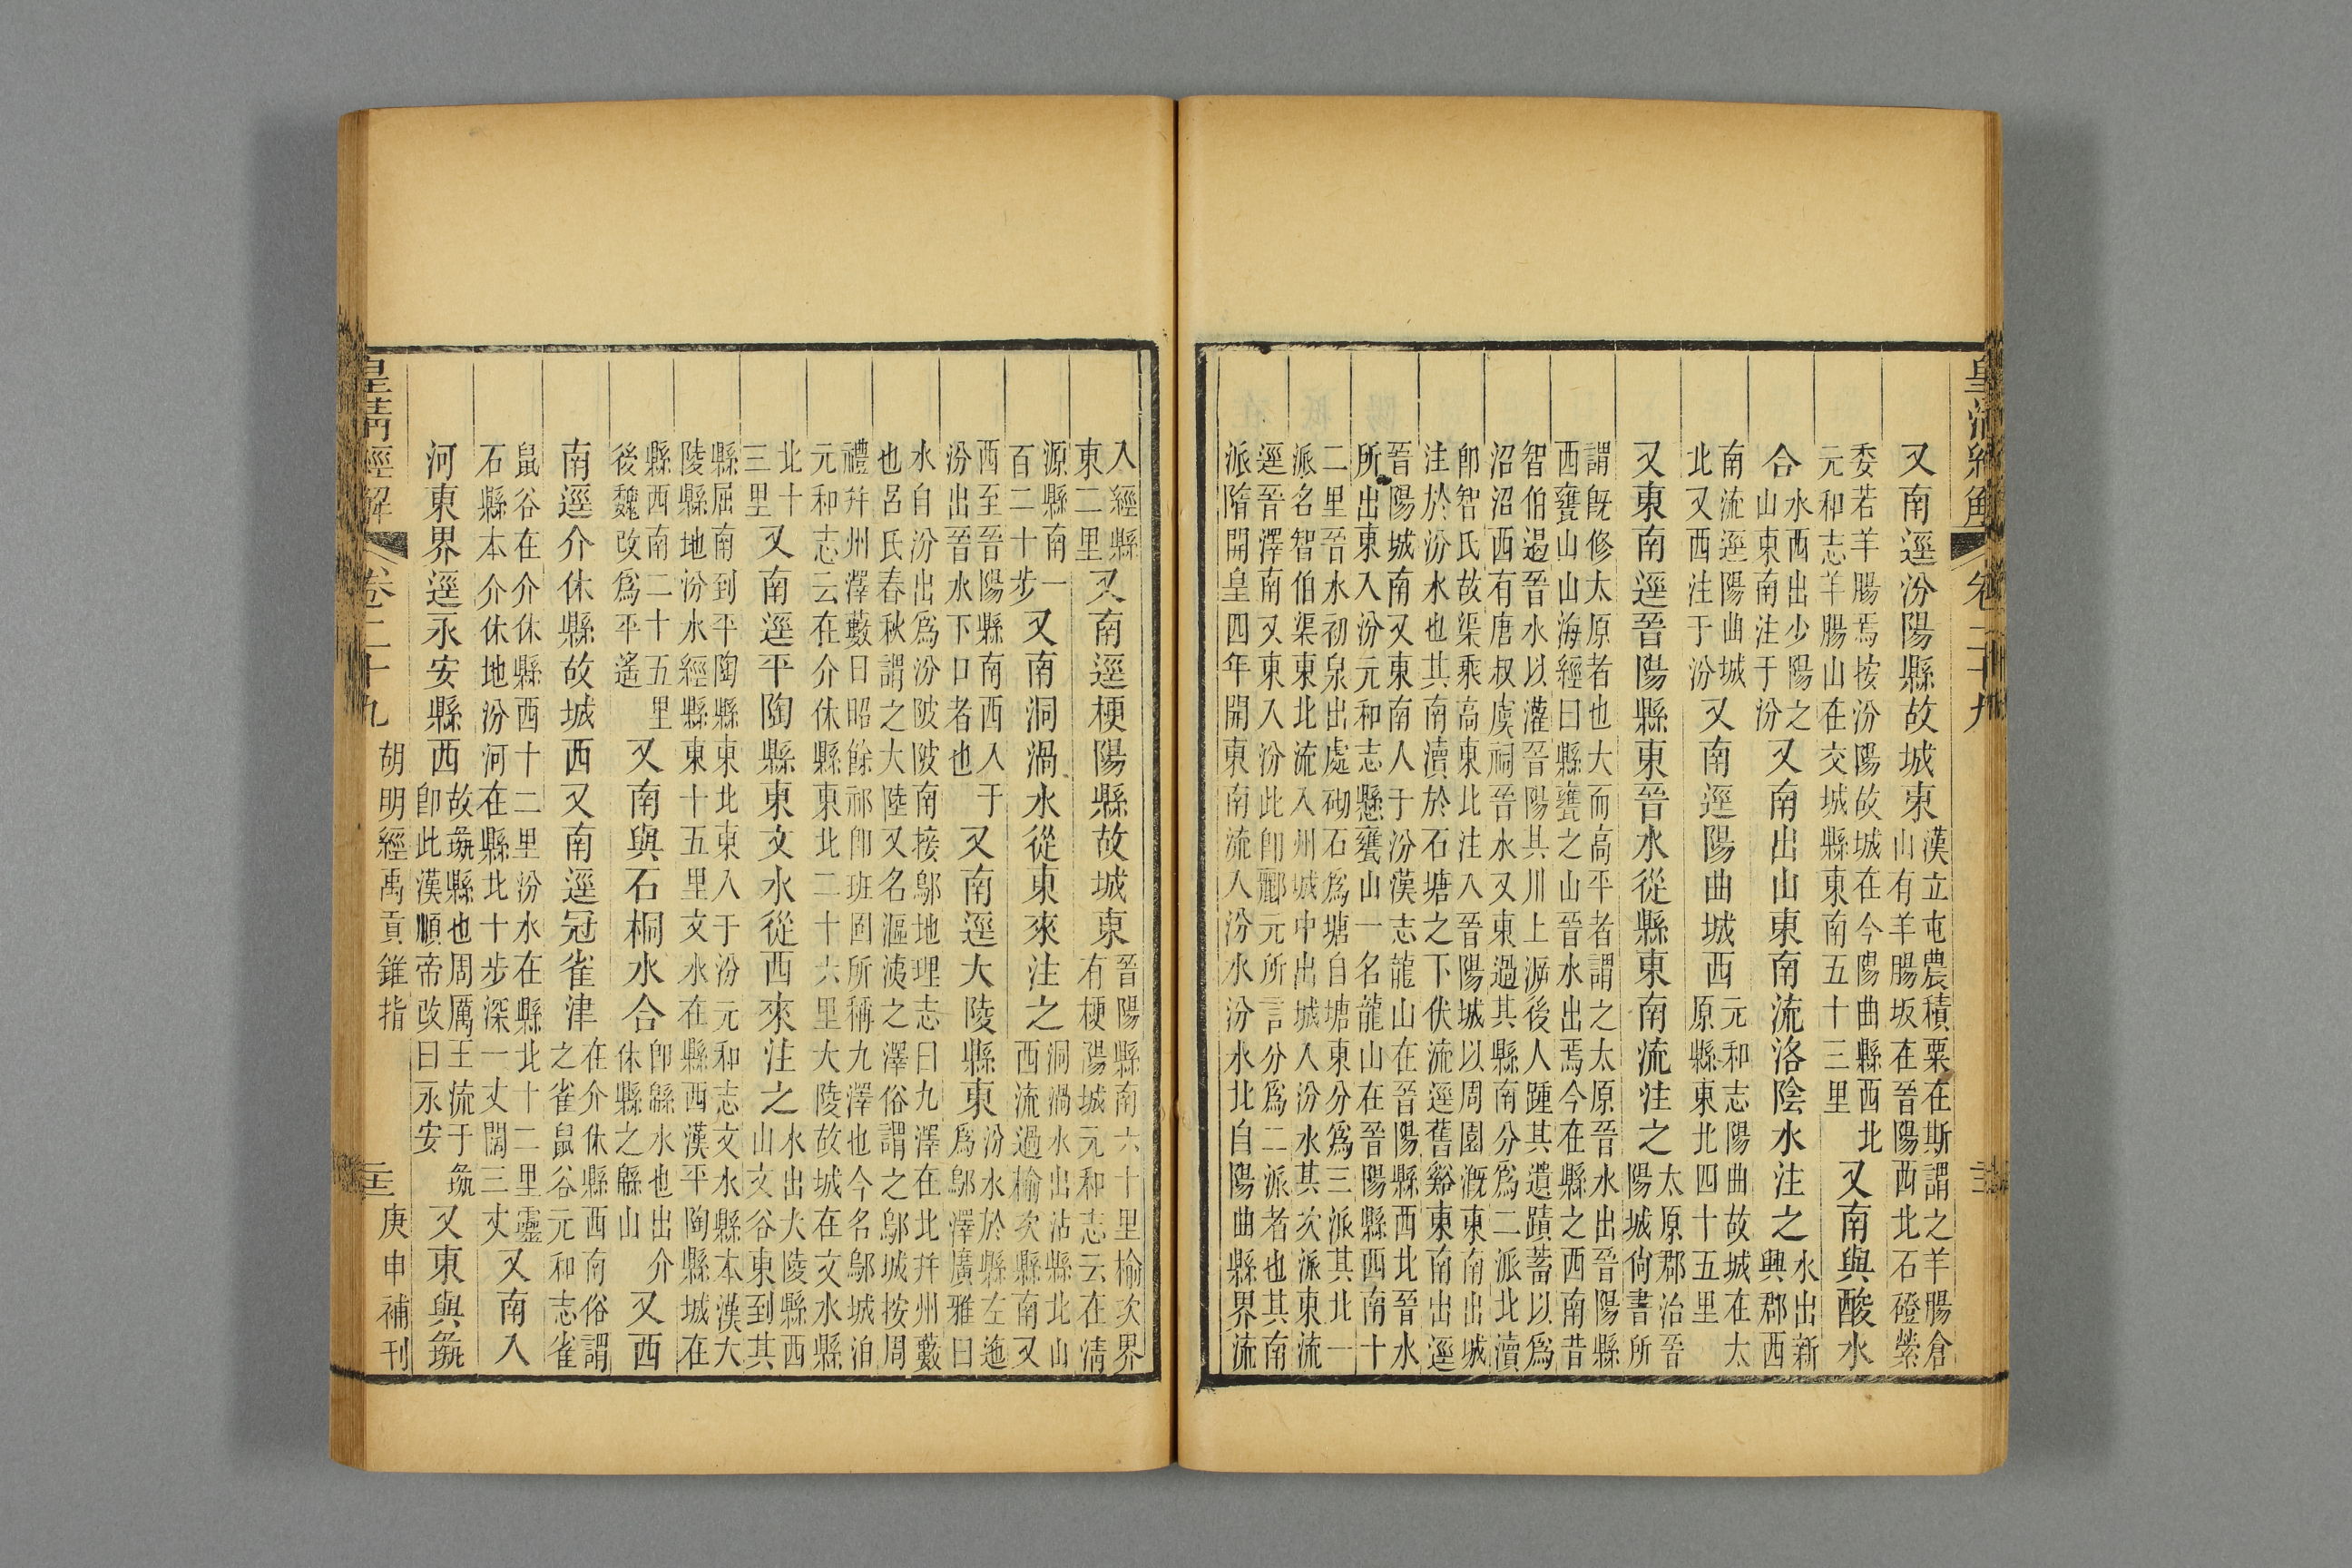 皇清經解 卷二十九
又南逕汾陽縣故城東
漢立屯農積粟在斯謂之羊腸倉
山有羊腸坂在晉陽西北石磴縈
委若羊腸焉按汾陽故城在今陽曲縣西北
元和志羊腸山在交城縣東南五十三里
又南與酸水
合
水西出少陽之
山東南注于汾
又南出山東南流洛陰水注之
水出新
興郡西
南流逕陽曲城
北又西注于汾
又南逕陽曲城西
元和志陽曲故城在太
原縣東北四十五里
又東南逕晉陽縣東晉水從縣東南流注之
太原郡治晉
陽城尙書所
謂旣修太原者也大而高平者謂之太原晉水出晉陽縣
西甕山山海經曰縣甕之山晉水出焉今在縣之西南昔
智伯遏晉水以灌晉陽其川上泝後人踵其遺蹟蓄以爲
沼沼西有唐叔虞祠晉水又東過其縣南分爲二派北瀆
卽智氏故渠乘高東北注入晉陽城以周園溉東南出城
注於汾水也其南瀆於石塘之下伏流逕舊谿東南出逕
晉陽城南又東南入于汾漢志龍山在晉陽縣西北晉水
所出東入汾元和志懸甕山一名龍山在晉陽縣西南十
二里晉水初泉出處砌石爲塘自塘東分爲三派其北一
派名智伯渠東北流入州城中出城入汾水其次派東流
逕晉澤南又東入汾此卽酈元所言分爲二派者也其南
派隋開皇四年開東南流入汾水汾水北自陽曲縣界流
入經縣
東二里
又南逕梗陽縣故城東
晉陽縣南六十里榆次界
有梗陽城元和志云在淸
源縣南一
百二十步
又南洞渦水從東來注之
洞渦水出沾縣北山
西流過榆次縣南又
西至晉陽縣南西入于
汾出晉水下口者也
又南逕大陵縣東
汾水於縣左迤
爲鄔澤廣雅曰
水自汾出爲汾陂陂南接鄔地理志曰九澤在北幷州藪
也呂氏春秋謂之大陸又名漚洟之澤俗謂之鄔城按周
禮幷州澤藪曰昭餘祁卽班固所稱九澤也今名鄔城泊
元和志云在介休縣東北二十六里大陵故城在文水縣
北十
三里
又南逕平陶縣東文水從西來注之
水出大陵縣西
山文谷東到其
縣屈南到平陶縣東北東入于汾元和志文水縣本漢大
陵縣地汾水經縣東十五里文水在縣西漢平陶縣城在
縣西南二十五里
後魏改爲平遙
又南與石桐水合
卽緜水也出介
休縣之緜山
又西
南逕介休縣故城西又南逕冠雀津
在介休縣西南俗謂
之雀鼠谷元和志雀
鼠谷在介休縣西十二里汾水在縣北十二里靈
石縣本介休地汾河在縣北十步深一丈闊三丈
又南入
河東界逕永安縣西
故彘縣也周厲王流于彘
卽此漢順帝改曰永安
又東與彘
皇清經解 卷二十九 胡明經禹貢錐指 庚申補刊